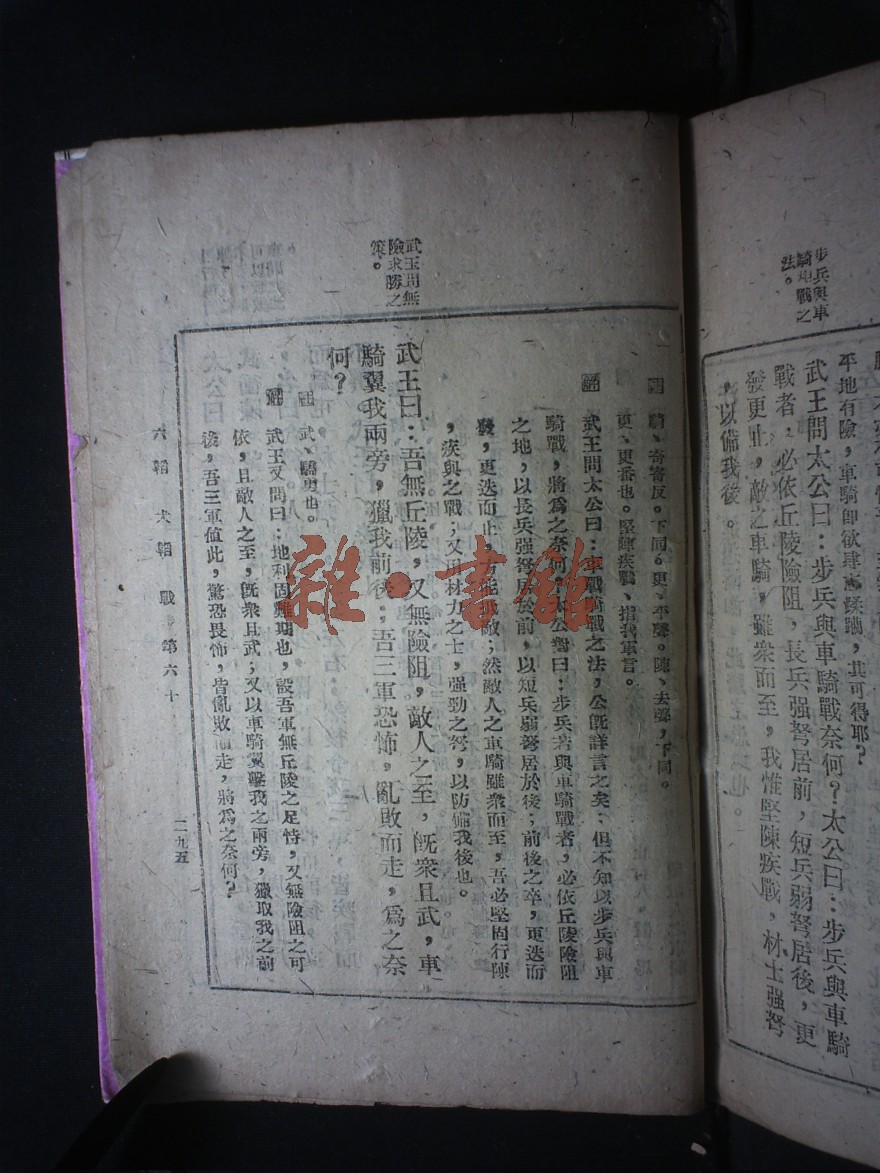 步兵與車
騎戰之
法。
平地有險，車騎即敏肆蹂躪，其可得耶？
武王問太公曰：步兵與車騎戰奈何？太公曰：步兵與車騎
戰者，必依丘陵險阻，長兵强弩居前，短兵弱弩居後，更
發更止，敵之車騎，雖衆而至，我惟堅陳疾戰，材士强弩
，以備我後。
武王問無
險求勝之
策。
騎、寄寄反。下同。更、平聲。陳、去聲，下同。
更、更番也。堅陣疾戰、指我軍言。
武王問太公曰：車戰騎戰之法，公旣詳言之矣；但不知以步兵與車
騎戰，將爲之奈何？太公對曰：步兵若與車騎戰者，必依丘陵險阻
之地，以長兵强弩居於前，以短兵弱弩居於後；前後之卒，更迭而
發，更迭而止，方能敵；然敵人之車騎雖衆而至，吾必堅固行陣
，疾與之戰；又用材力之士，强勁之弩，以防備我後也。
武王曰：吾無丘陵，又無險阻，敵人之至，旣衆且武，車
騎翼我兩旁，獵我前後；吾三軍恐怖，亂敗而走，爲之奈
何？
註 武、驍勇也。
武王又問曰：地利固難期也，設吾軍無丘陵之足恃，又無險阻之可
依，且敵人之至，旣衆且武；又以車騎翼擊我之兩旁，獵取我之前
後，吾三軍值此，驚恐畏怖，皆亂敗而走，將爲之奈何？
六韜 犬韜 戰步第六十 二九五
雜·書館